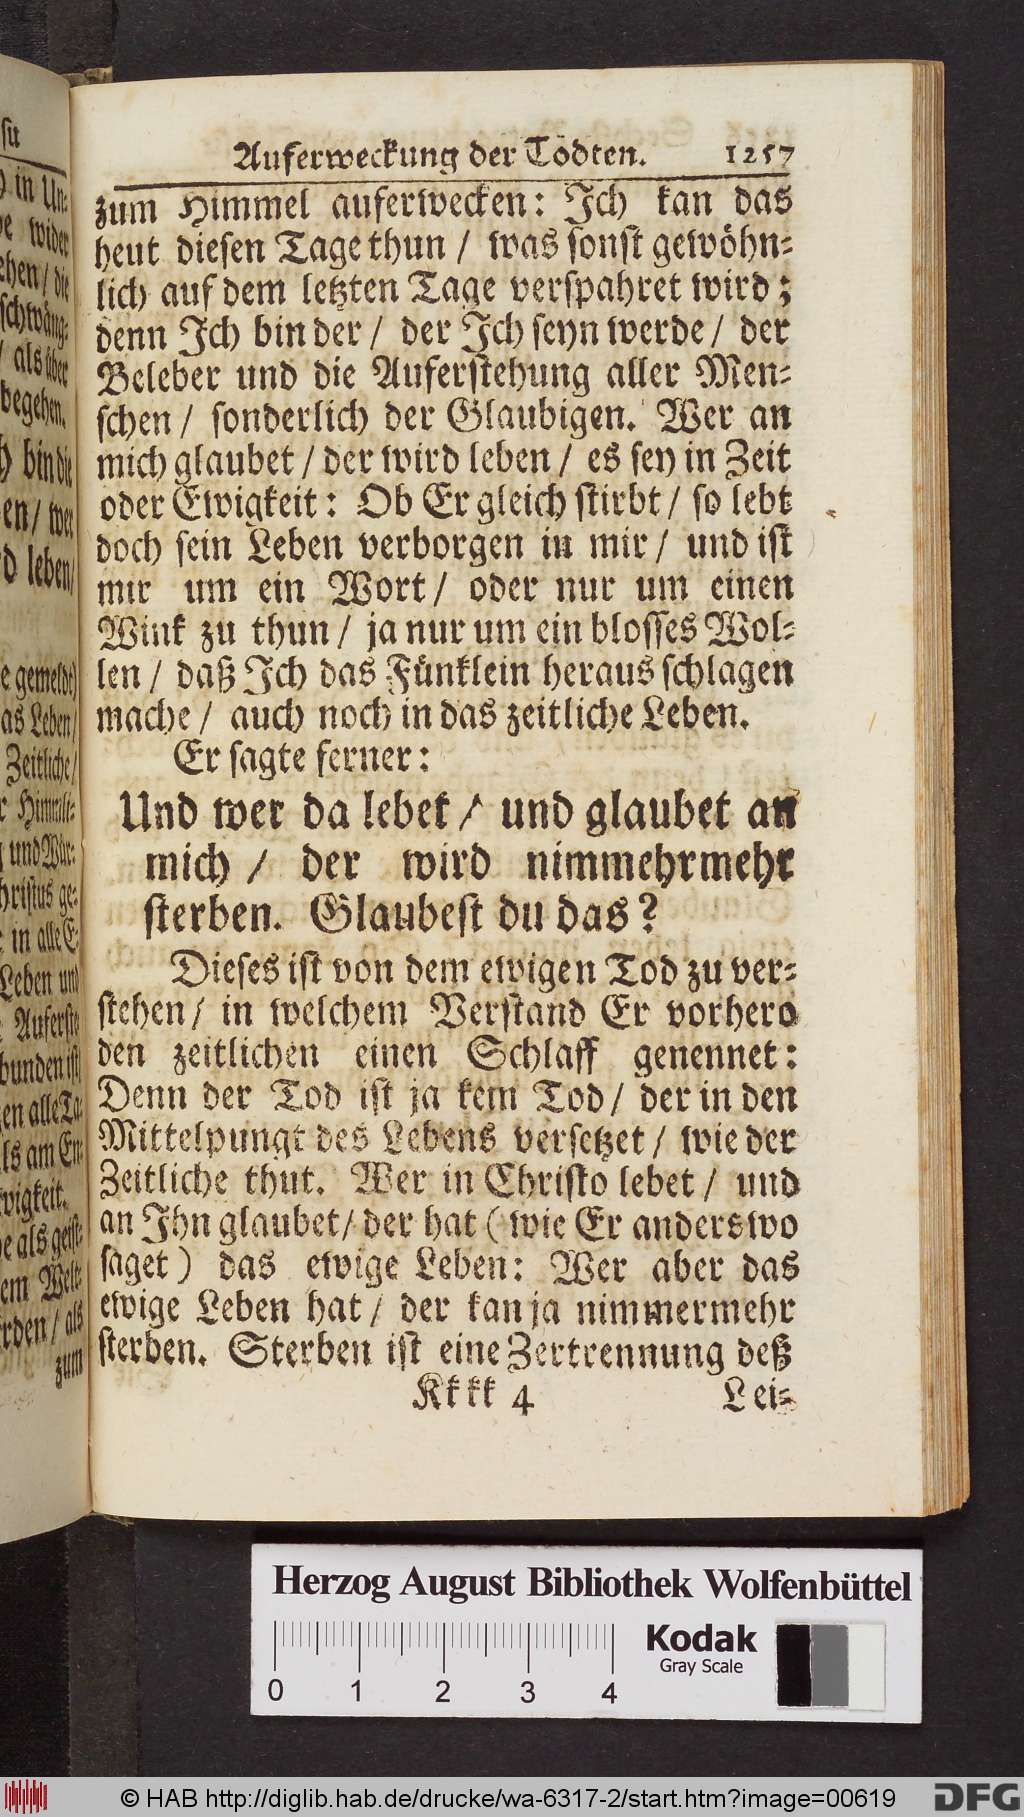 Auferweckung der Todten. 1257
zum Himmel auferwecken: Ich kan das
heut diesen Tage thun / was sonst gewöhn-
lich auf dem letzten Tage verspahret wird;
denn Ich bin der / der Ich seyn werde / der
Beleber und die Auferstehung aller Men-
schen / sonderlich der Glaubigen. Wer an
mich glaubet / der wird leben / es sey in Zeit
oder Ewigkeit: Ob Er gleich stirbt / so lebt
doch sein Leben verborgen in mir / und ist
mir um ein Wort / oder nur um einen
Wink zu thun / ja nur um ein blosses Wol-
len / daß Ich das Fünklein heraus schlagen
mache / auch noch in das zeitliche Leben.
Er sagte ferner:
Und wer da lebet / und glaubet an
mich / der wird nimmehrmehr
sterben. Glaubest du das?
Dieses ist von dem ewigen Tod zu ver-
stehen / in welchem Verstand Er vorhero
den zeitlichen einen Schlaff genennet:
Denn der Tod ist ja kein Tod / der in den
Mittelpungt des Lebens versetzet / wie der
Zeitliche thut. Wer in Christo lebet / und
an Ihn glaubet / der hat (wie Er anderswo
saget) das ewige Leben: Wer aber das
ewige Leben hat / der kan ja nimmermehr
sterben. Sterben ist eine Zertrennung deß
Kkkk 4 Lei-
in Un-
wider
ehen / die
schwäng-
/ als über
begehen.
bin die
en / wer
d leben /
e gemeldt)
as Leben /
Zeitliche /
r Himmli-
und Wür-
hristus ge-
in alle E-
Leben und
Aufersteh
bunden ist
en alle Ta-
ls am En-
wigkeit.
e als geist-
em Welt-
rden / als
zum
Herzog August Bibliothek Wolfenbüttel
Kodak
Gray Scale
0 1 2 3 4
© HAB http://diglib.hab.de/drucke/wa-6317-2/start.htm?image=00619
DFG